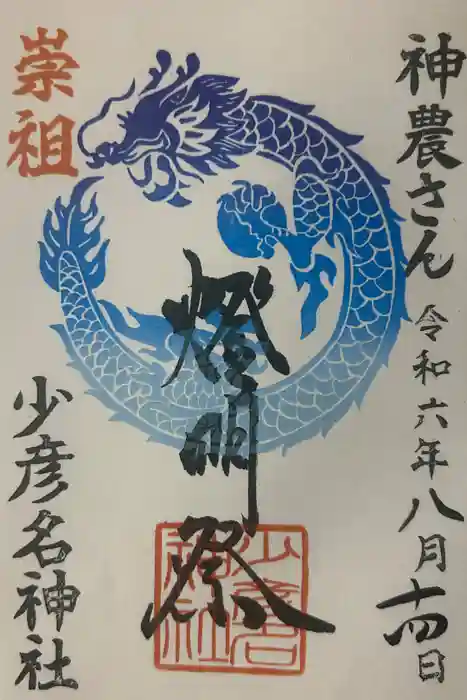 神農さん 令和六年八月十四日
崇祖
燈明祭
少彦名神社
少彦名神社